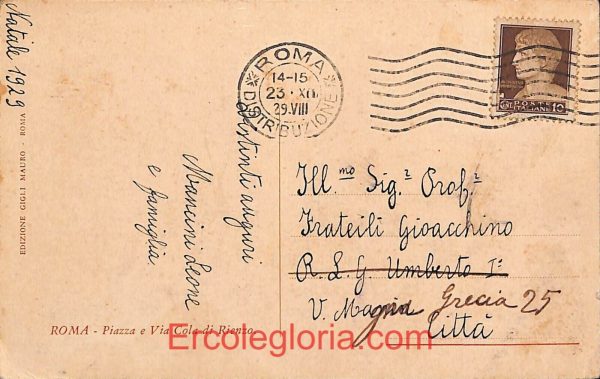 Natale 1929
EDIZIONE GIGLI MAURO - ROMA
ROMA
14-15
23·XII
29.VIII
DISTRIBUZIONE
POSTE
ITALIANE
10
Distinti auguri
Mancini Leone
e famiglia
Ill.mo Sig.r Prof.r
Frateili Gioacchino
R. L. G. Umberto I°
V. Magna Grecia 25
Città
ROMA - Piazza e Via Cola di Rienzo.
Ercolegloria.com